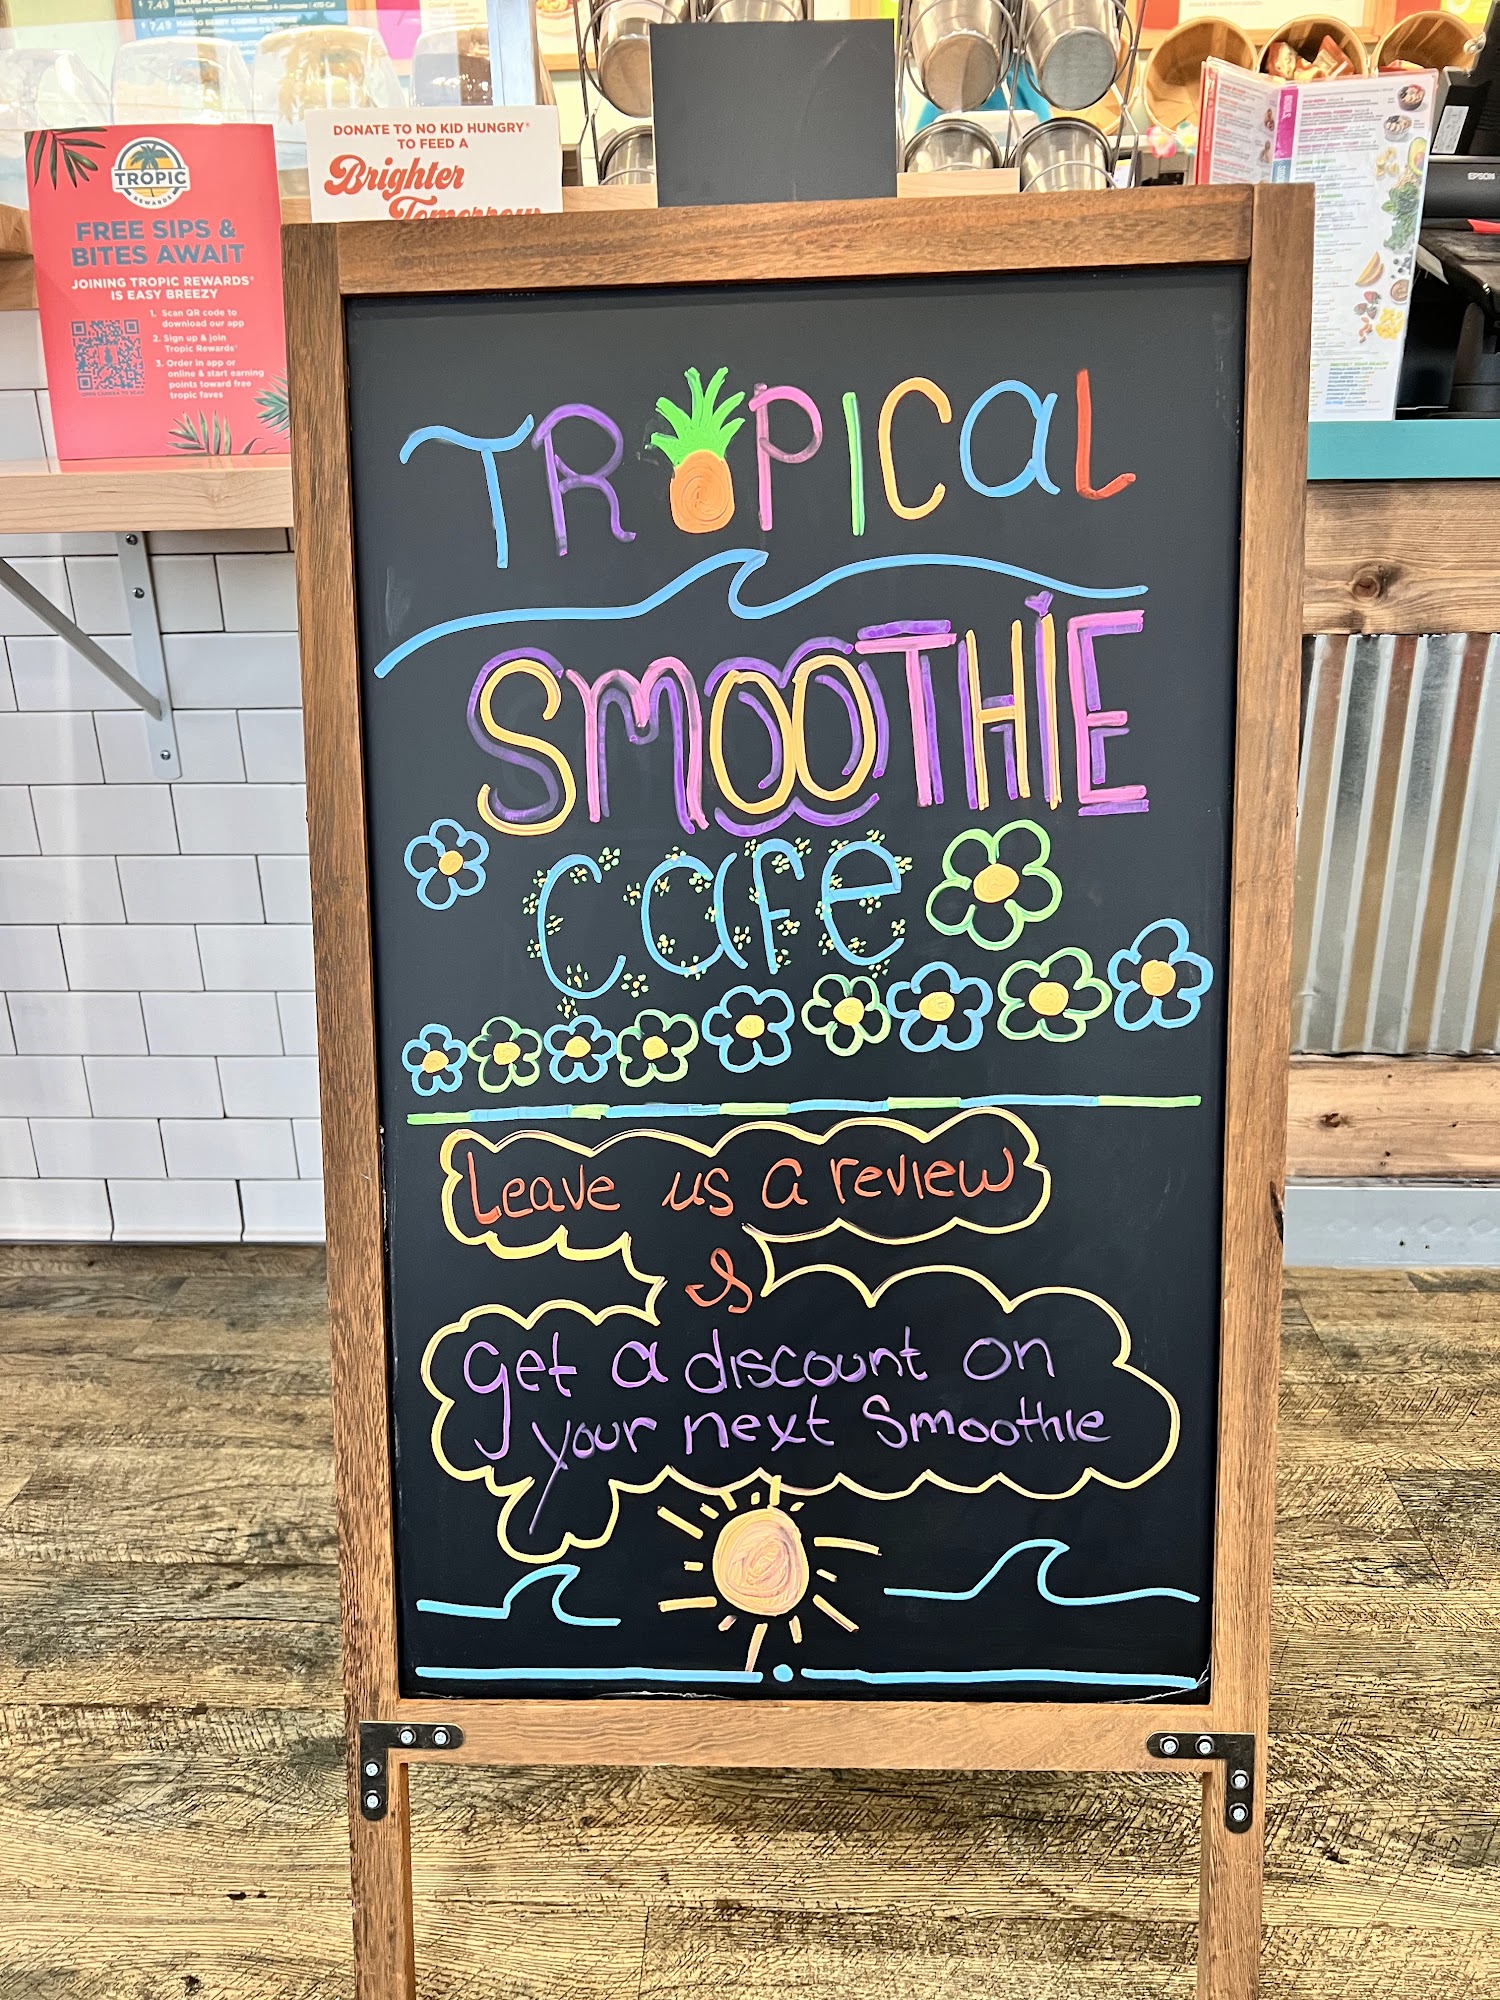 $7.49
ISLAND PUNCH
$7.49
DONATE TO NO KID HUNGRY®
TO FEED A
Brighter
Tomorrow
TROPIC
REWARDS
FREE SIPS &
BITES AWAIT
JOINING TROPIC REWARDS®
IS EASY BREEZY
1. Scan QR code to
download our app
2. Sign up & join
Tropic Rewards®
3. Order in app or
online & start earning
points toward free
tropic faves
OPEN CAMERA TO SCAN
EPSON
TROPICAL
SMOOTHIE
Cafe
Leave us a review
&
get a discount on
your next Smoothie